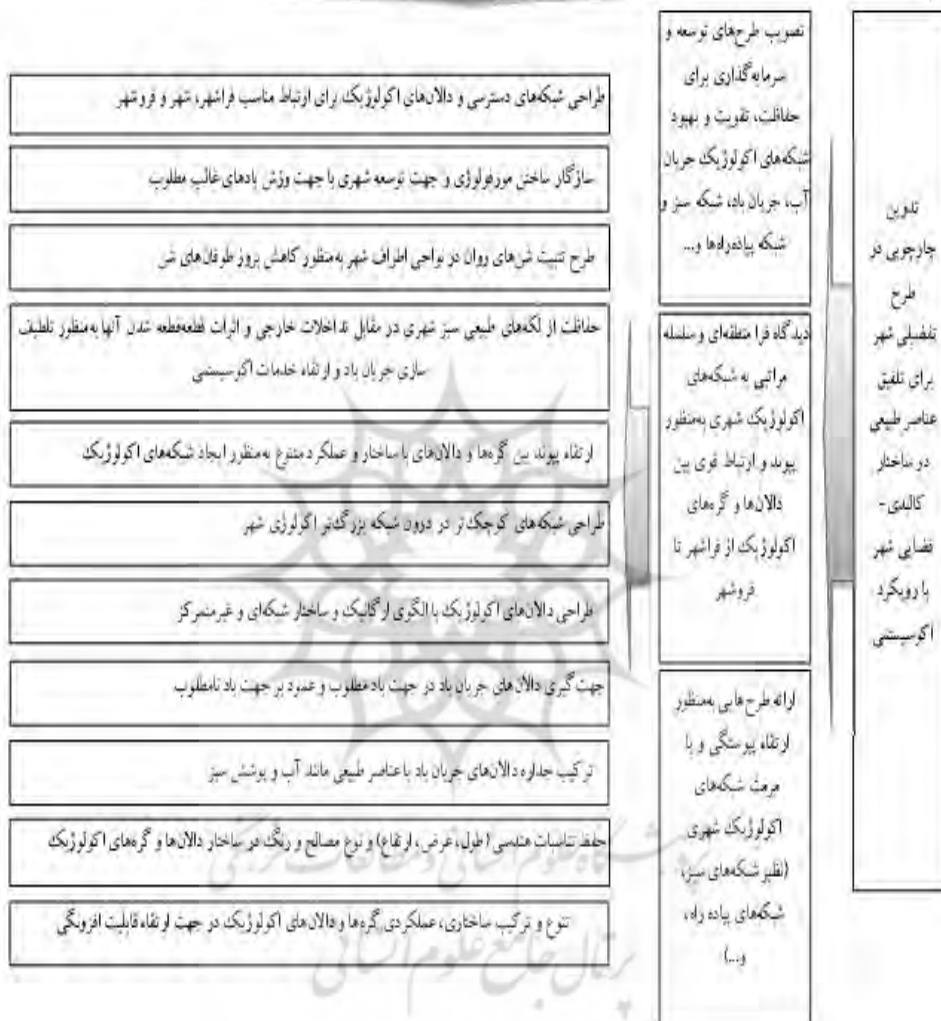 تدوین
چارچوبی در
طرح
تفضیلی شهر
برای تلفیق
عناصر طبیعی
در ساختار
کالبدی-
فضایی شهر
با رویکرد
اکوسیستمی
تصویب طرح‌های توسعه و
سرمایه‌گذاری برای
حفاظت، تقویت و بهبود
شبکه‌های اکولوژیک جریان
آب، جریان باد، شبکه سبز و
شبکه پیاده‌راه‌ها و...
دیدگاه فرا منطقه‌ای و سلسله
مراتبی به شبکه‌های
اکولوژیک شهری به‌منظور
پیوند و ارتباط قوی بین
دالان‌ها و گره‌های
اکولوژیک از فراشهر تا
فروشهر
ارائه طرح‌هایی به‌منظور
ارتقاء پیوستگی و یا
مرمت شبکه‌های
اکولوژیک شهری
(نظیر شبکه‌های سبز،
شبکه‌های پیاده راه،
و...)
طراحی شبکه‌های دسترسی و دالان‌های اکولوژیک برای ارتباط مناسب فراشهر، شهر و فروشهر
سازگار ساختن مورفولوژی و جهت توسعه شهری با جهت وزش بادهای غالب مطلوب
طرح تثبیت شن‌های روان در نواحی اطراف شهر به‌منظور کاهش بروز طوفان‌های شن
حفاظت از لکه‌های طبیعی سبز شهری در مقابل تداخلات خارجی و اثرات قطعه‌قطعه شدن آنها به‌منظور تلطیف
سازی جریان باد و ارتقاء خدمات اکوسیستمی
ارتقاء پیوند بین گره‌ها و دالان‌های با ساختار و عملکرد متنوع به‌منظور ایجاد شبکه‌های اکولوژیک
طراحی شبکه‌های کوچک‌تر در درون شبکه بزرگ‌تر اکولوژی شهر
طراحی دالان‌های اکولوژیک با الگوی ارگانیک و ساختار شبکه‌ای و غیرمتمرکز
جهت گیری دالان های جریان باد در جهت باد مطلوب و عمود بر جهت باد نامطلوب
ترکیب جداره دالان‌های جریان باد با عناصر طبیعی مانند آب و پوشش سبز
حفظ تناسبات هندسی (طول، عرض، ارتفاع) و نوع مصالح و رنگ در ساختار دالان‌ها و گره‌های اکولوژیک
تنوع و ترکیب ساختاری، عملکردی گره‌ها و دالان‌های اکولوژیک در جهت ارتقاء قابلیت افزونگی
پژوهشگاه علوم انسانی و مطالعات فرهنگی
پرتال جامع علوم انسانی